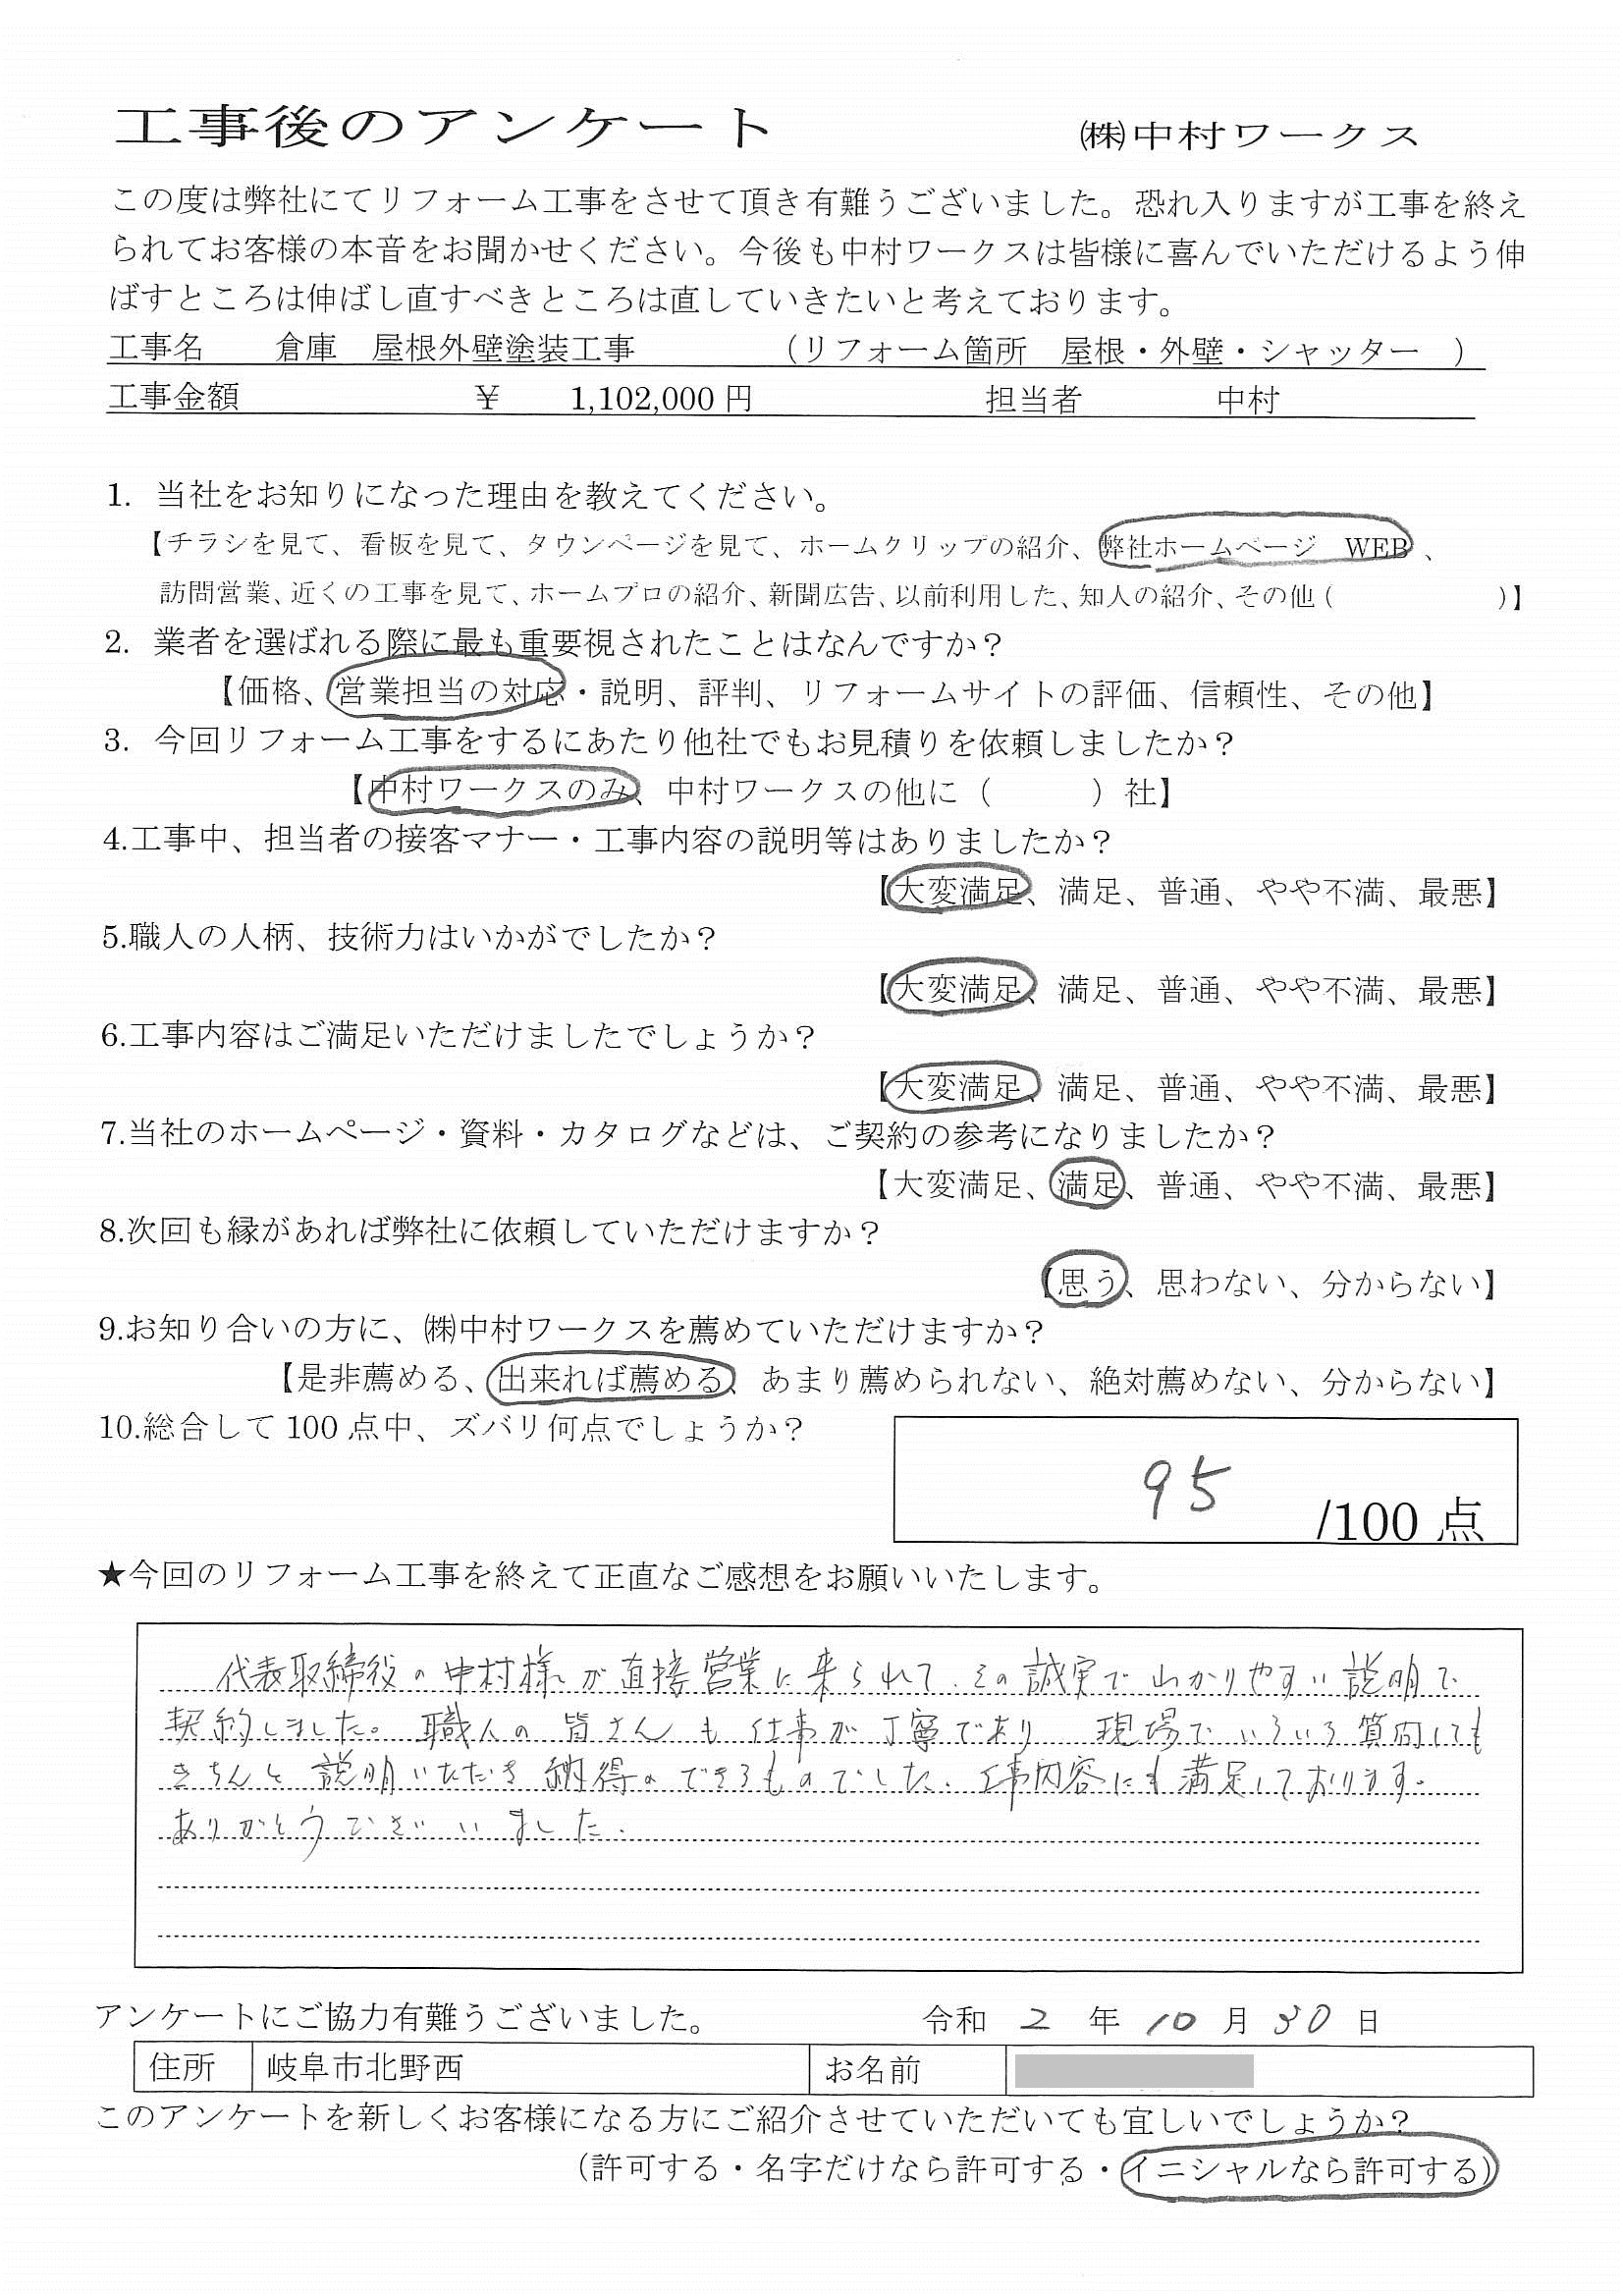 工事後のアンケート　㈱中村ワークス
この度は弊社にてリフォーム工事をさせて頂き有難うございました。恐れ入りますが工事を終え
られてお客様の本音をお聞かせください。今後も中村ワークスは皆様に喜んでいただけるよう伸
ばすところは伸ばし直すべきところは直していきたいと考えております。
工事名　倉庫　屋根外壁塗装工事　（リフォーム箇所　屋根・外壁・シャッター　）
工事金額　￥　1,102,000円　担当者　中村
1. 当社をお知りになった理由を教えてください。
【チラシを見て、看板を見て、タウンページを見て、ホームクリップの紹介、弊社ホームページ　WEB、
訪問営業、近くの工事を見て、ホームプロの紹介、新聞広告、以前利用した、知人の紹介、その他（　　　　）】
2. 業者を選ばれる際に最も重要視されたことはなんですか？
【価格、営業担当の対応・説明、評判、リフォームサイトの評価、信頼性、その他】
3. 今回リフォーム工事をするにあたり他社でもお見積りを依頼しましたか？
【中村ワークスのみ、中村ワークスの他に（　　　）社】
4.工事中、担当者の接客マナー・工事内容の説明等はありましたか？
【大変満足、満足、普通、やや不満、最悪】
5.職人の人柄、技術力はいかがでしたか？
【大変満足、満足、普通、やや不満、最悪】
6.工事内容はご満足いただけましたでしょうか？
【大変満足、満足、普通、やや不満、最悪】
7.当社のホームページ・資料・カタログなどは、ご契約の参考になりましたか？
【大変満足、満足、普通、やや不満、最悪】
8.次回も縁があれば弊社に依頼していただけますか？
【思う、思わない、分からない】
9.お知り合いの方に、㈱中村ワークスを薦めていただけますか？
【是非薦める、出来れば薦める、あまり薦められない、絶対薦めない、分からない】
10.総合して100点中、ズバリ何点でしょうか？
95 /100点
★今回のリフォーム工事を終えて正直なご感想をお願いいたします。
代表取締役の中村様が直接営業に来られて、その誠実でわかりやすい説明で
契約しました。職人の皆さんも仕事が丁寧であり　現場でいろいろ質問しても
きちんと説明いただき納得のできるものでした。工事内容にも満足しております。
ありがとうございました。
アンケートにご協力有難うございました。　令和 2 年 10 月 30 日
住所　岐阜市北野西　お名前
このアンケートを新しくお客様になる方にご紹介させていただいても宜しいでしょうか？
（許可する・名字だけなら許可する・イニシャルなら許可する）